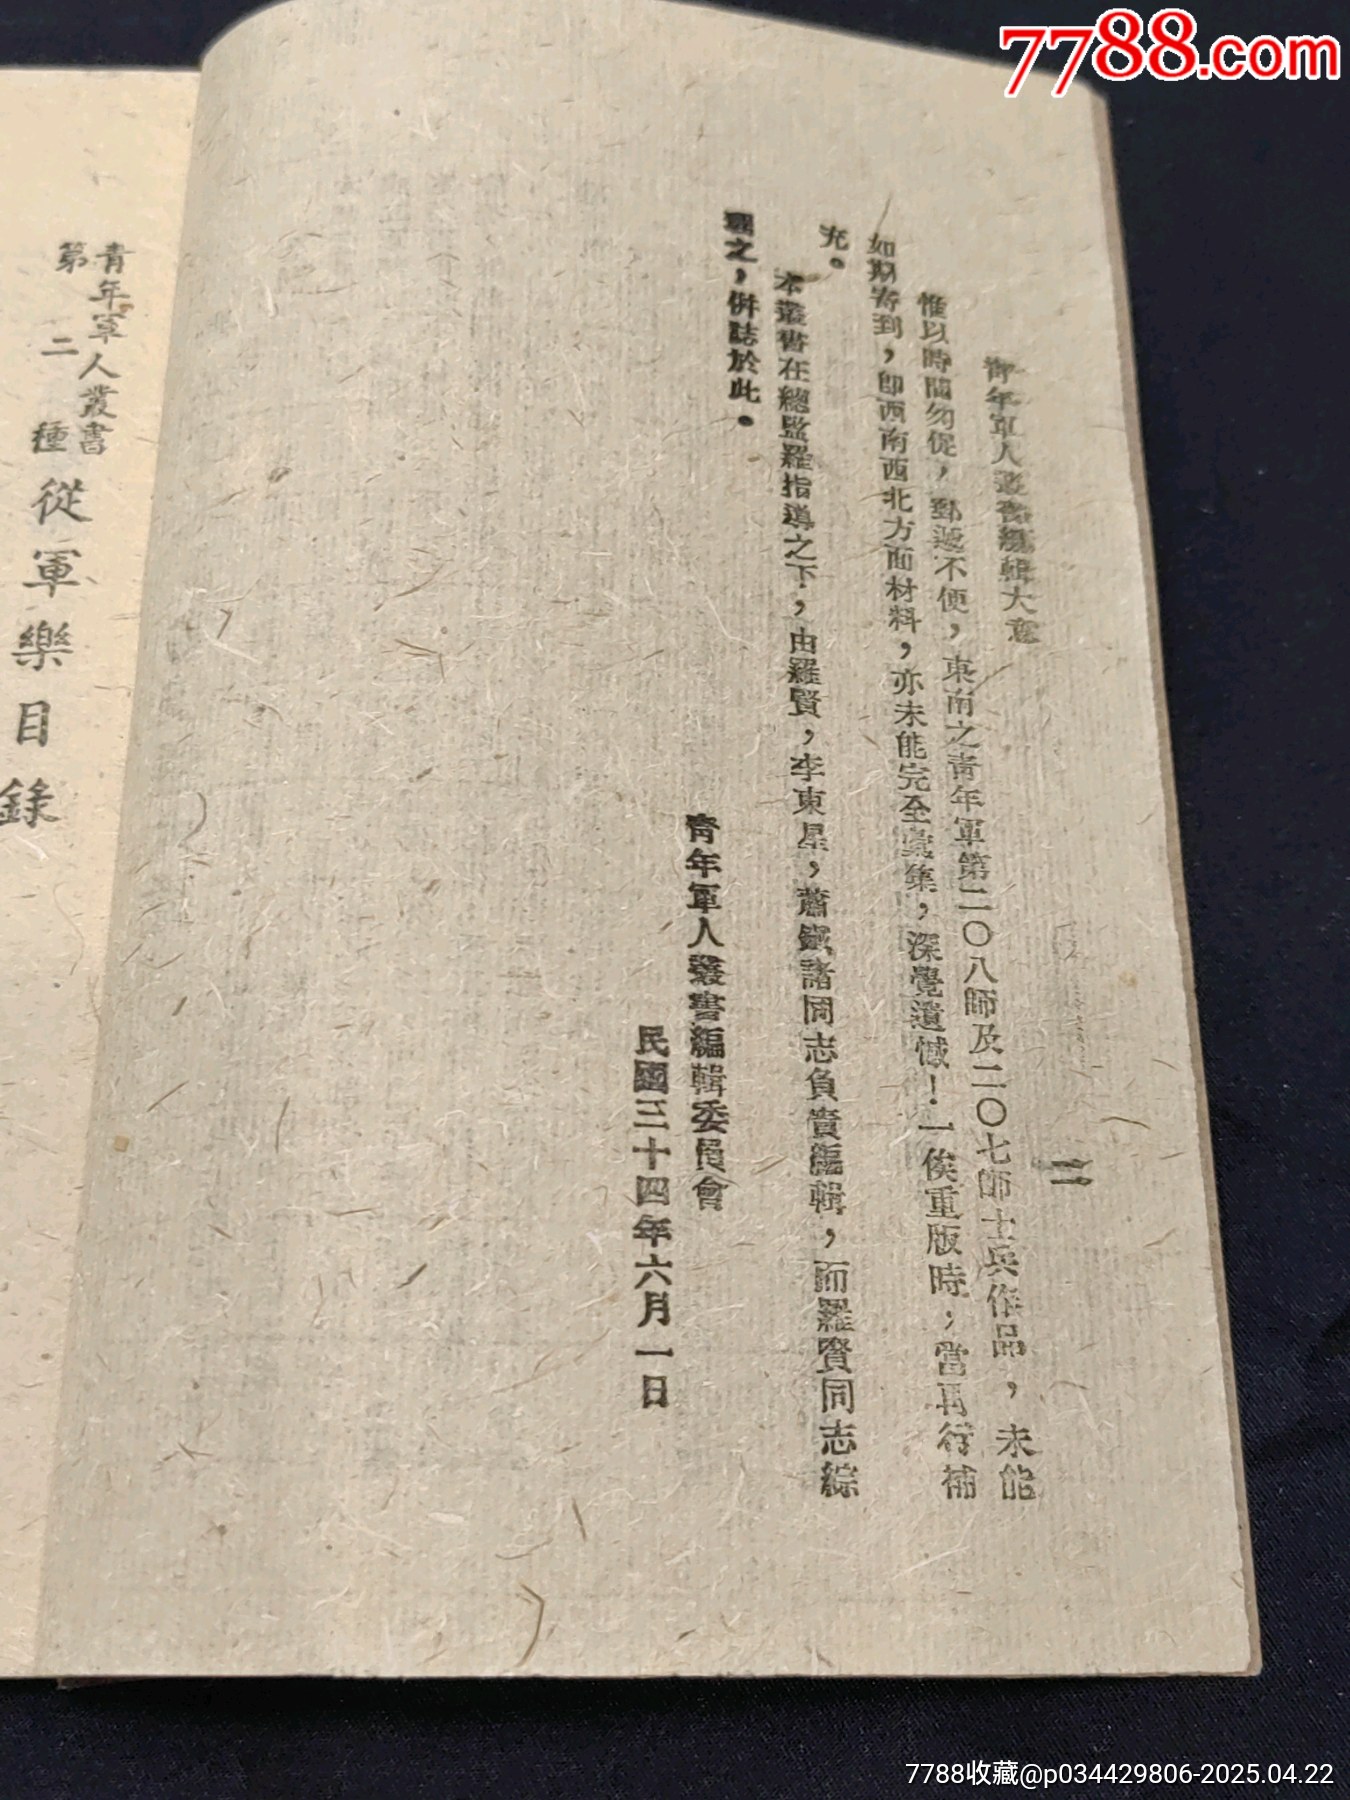 7788.com
青年軍人叢書編輯大意
二
惟以時間匆促，郵遞不便，東南之青年軍第二〇八師及二〇七師士兵作品，未能
如期寄到，即西南西北方面材料，亦未能完全彙集，深覺遺憾！一俟重版時，當再行補
充。
本叢書在總監羅指導之下，由羅賢，李東星，蕭鐵諸同志負責編輯，而羅賢同志綜
之，併誌於此。
青年軍人叢書編輯委員會
民國三十四年六月一日
青年軍人叢書
第二種
從軍樂目錄
7788收藏@p034429806-2025.04.22